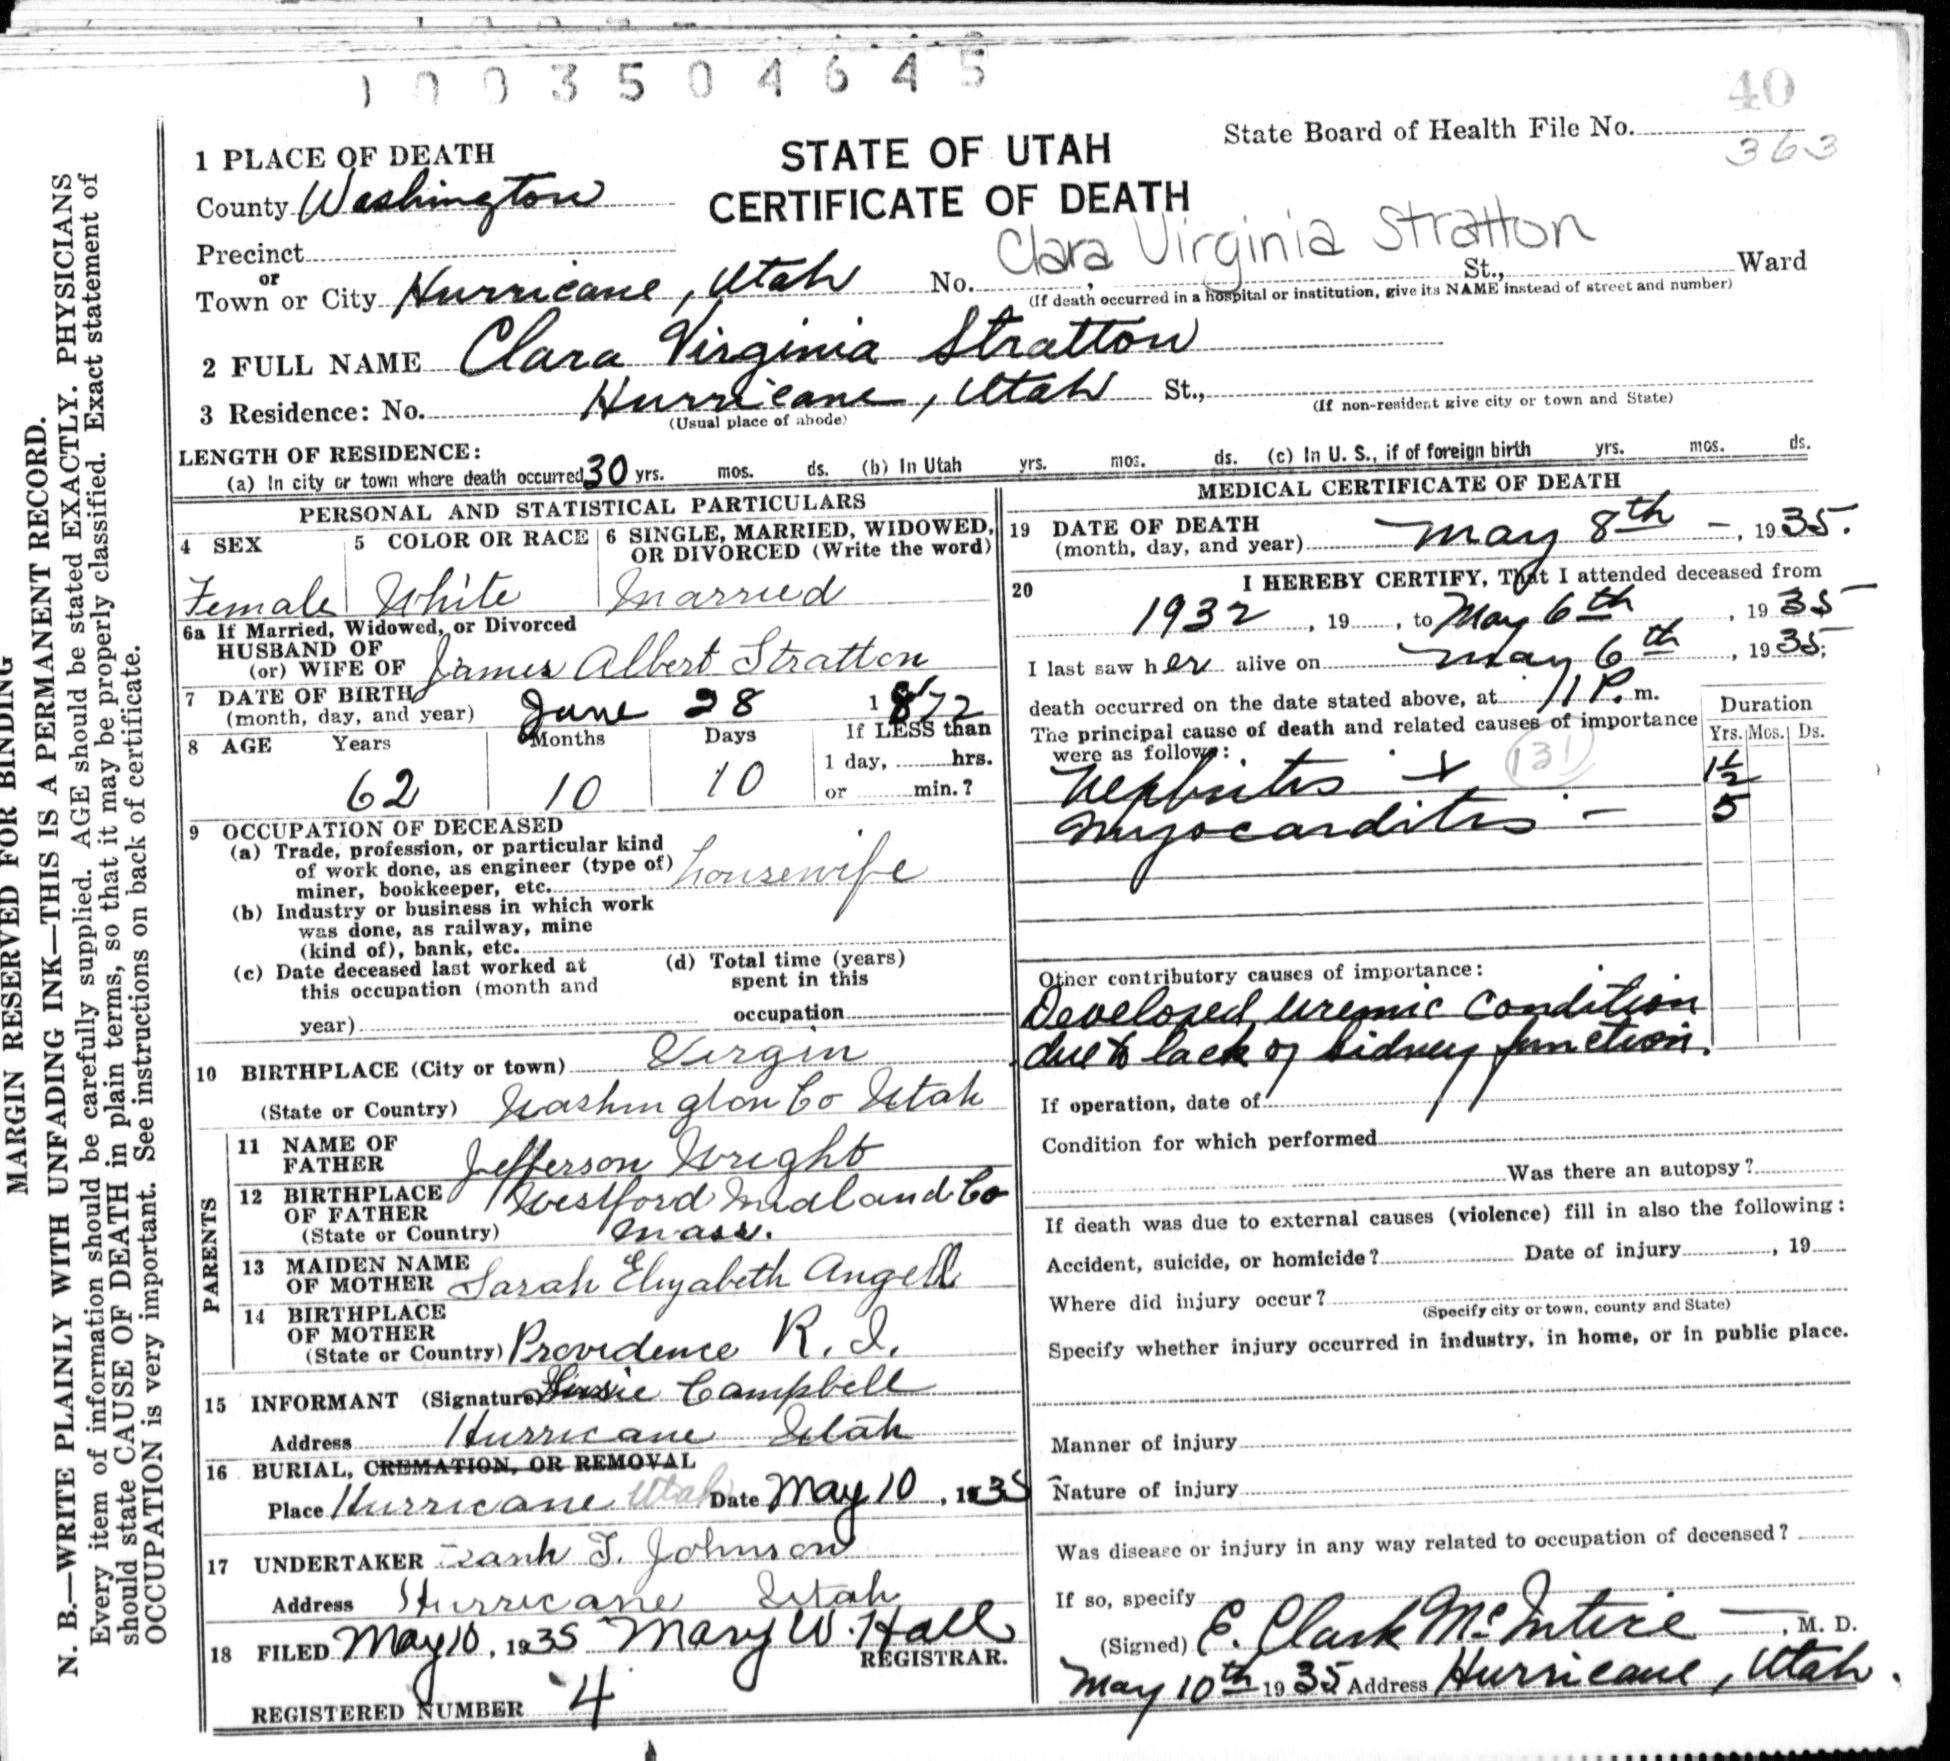 1003504645
40
State Board of Health File No.
363
1 PLACE OF DEATH
STATE OF UTAH
CERTIFICATE OF DEATH
County Washington
Clara Virginia Stratton
Precinct
or
Town or City Hurricane, Utah No. St., Ward
(If death occurred in a hospital or institution, give its NAME instead of street and number)
2 FULL NAME Clara Virginia Stratton
3 Residence: No. Hurricane, Utah St.,
(Usual place of abode) (If non-resident give city or town and State)
LENGTH OF RESIDENCE:
(a) In city or town where death occurred 30 yrs. mos. ds. (b) In Utah yrs. mos. ds. (c) In U. S., if of foreign birth yrs. mos. ds.
PERSONAL AND STATISTICAL PARTICULARS
4 SEX
Female
5 COLOR OR RACE
White
6 SINGLE, MARRIED, WIDOWED,
OR DIVORCED (Write the word)
Married
6a If Married, Widowed, or Divorced
HUSBAND OF
(or) WIFE OF James Albert Stratton
7 DATE OF BIRTH
(month, day, and year) June 28 1872
8 AGE Years Months Days If LESS than
1 day, hrs.
62 10 10
or min.?
9 OCCUPATION OF DECEASED
(a) Trade, profession, or particular kind
of work done, as engineer (type of)
miner, bookkeeper, etc. housewife
(b) Industry or business in which work
was done, as railway, mine
(kind of), bank, etc.
(c) Date deceased last worked at
this occupation (month and
year)
(d) Total time (years)
spent in this
occupation
10 BIRTHPLACE (City or town) Virgin
(State or Country) Washington Co Utah
PARENTS
11 NAME OF
FATHER Jefferson Wright
12 BIRTHPLACE
OF FATHER Westford Midland Co
(State or Country) Mass.
13 MAIDEN NAME
OF MOTHER Sarah Elizabeth Angell
14 BIRTHPLACE
OF MOTHER
(State or Country) Providence R. I.
15 INFORMANT (Signature) Campbell
Address Hurricane Utah
16 BURIAL, CREMATION, OR REMOVAL
Place Hurricane Utah Date May 10, 1935
17 UNDERTAKER Frank T. Johnson
Address Hurricane Utah
18 FILED May 10, 1935 Mary W. Hall
REGISTRAR.
REGISTERED NUMBER 4
MEDICAL CERTIFICATE OF DEATH
19 DATE OF DEATH
(month, day, and year) May 8th -, 1935.
20 I HEREBY CERTIFY, That I attended deceased from
1932, 19, to May 6th, 1935
I last saw her alive on May 6th, 1935;
death occurred on the date stated above, at 11 P. m.
The principal cause of death and related causes of importance
were as follows:
Duration
Yrs. Mos. Ds.
131
Nephritis + 1½
Myocarditis - 5
Other contributory causes of importance:
Developed uremic condition
due to lack of kidney function.
If operation, date of
Condition for which performed
Was there an autopsy?
If death was due to external causes (violence) fill in also the following:
Accident, suicide, or homicide? Date of injury, 19
Where did injury occur?
(Specify city or town, county and State)
Specify whether injury occurred in industry, in home, or in public place.
Manner of injury
Nature of injury
Was disease or injury in any way related to occupation of deceased?
If so, specify
(Signed) E. Clark McIntire, M. D.
May 10th 1935 Address Hurricane, Utah.
MARGIN RESERVED FOR BINDING
N. B.—WRITE PLAINLY WITH UNFADING INK—THIS IS A PERMANENT RECORD.
Every item of information should be carefully supplied. AGE should be stated EXACTLY. PHYSICIANS
should state CAUSE OF DEATH in plain terms, so that it may be properly classified. Exact statement of
OCCUPATION is very important. See instructions on back of certificate.